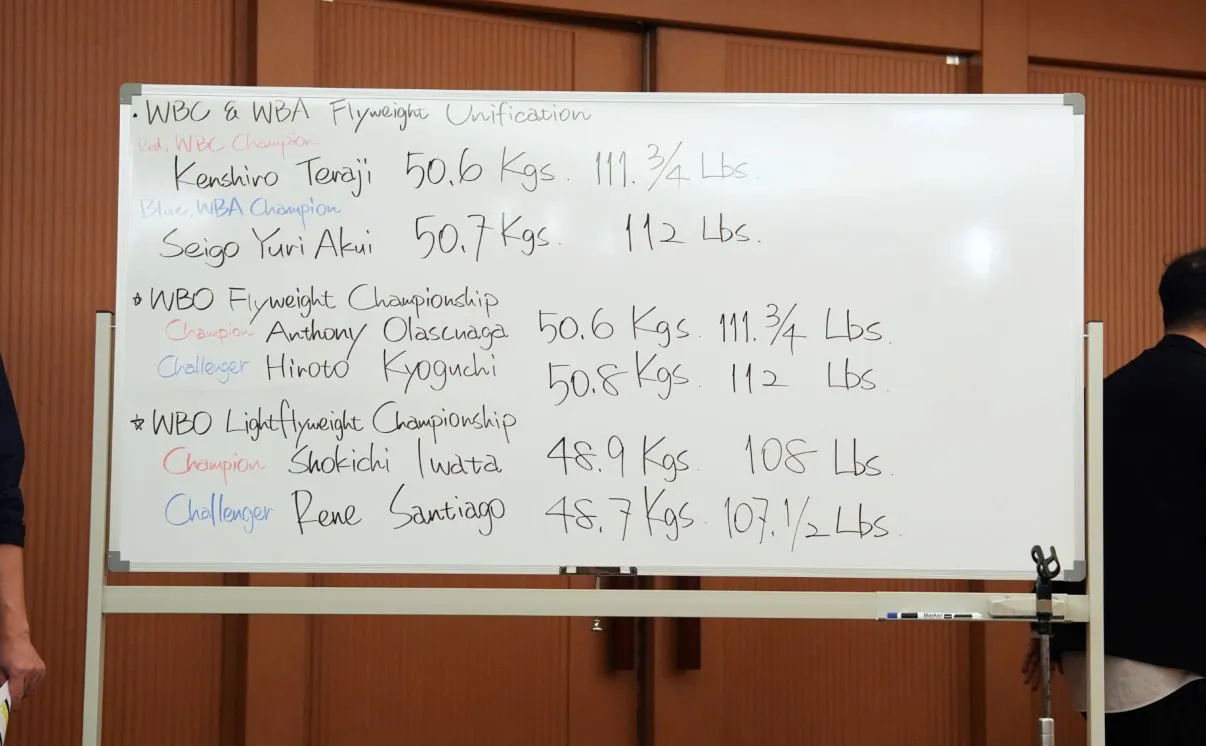 · WBC & WBA Flyweight Unification
Red, WBC Champion
Kenshiro Teraji 50.6 Kgs. 111.3/4 Lbs.
Blue, WBA Champion
Seigo Yuri Akui 50.7 Kgs. 112 Lbs.
☆ WBO Flyweight Championship
Champion Anthony Olascuaga 50.6 Kgs. 111.3/4 Lbs.
Challenger Hiroto Kyoguchi 50.8 Kgs. 112 Lbs.
☆ WBO Lightflyweight Championship
Champion Shokichi Iwata 48.9 Kgs. 108 Lbs.
Challenger Rene Santiago 48.7 Kgs. 107.1/2 Lbs.
Marker